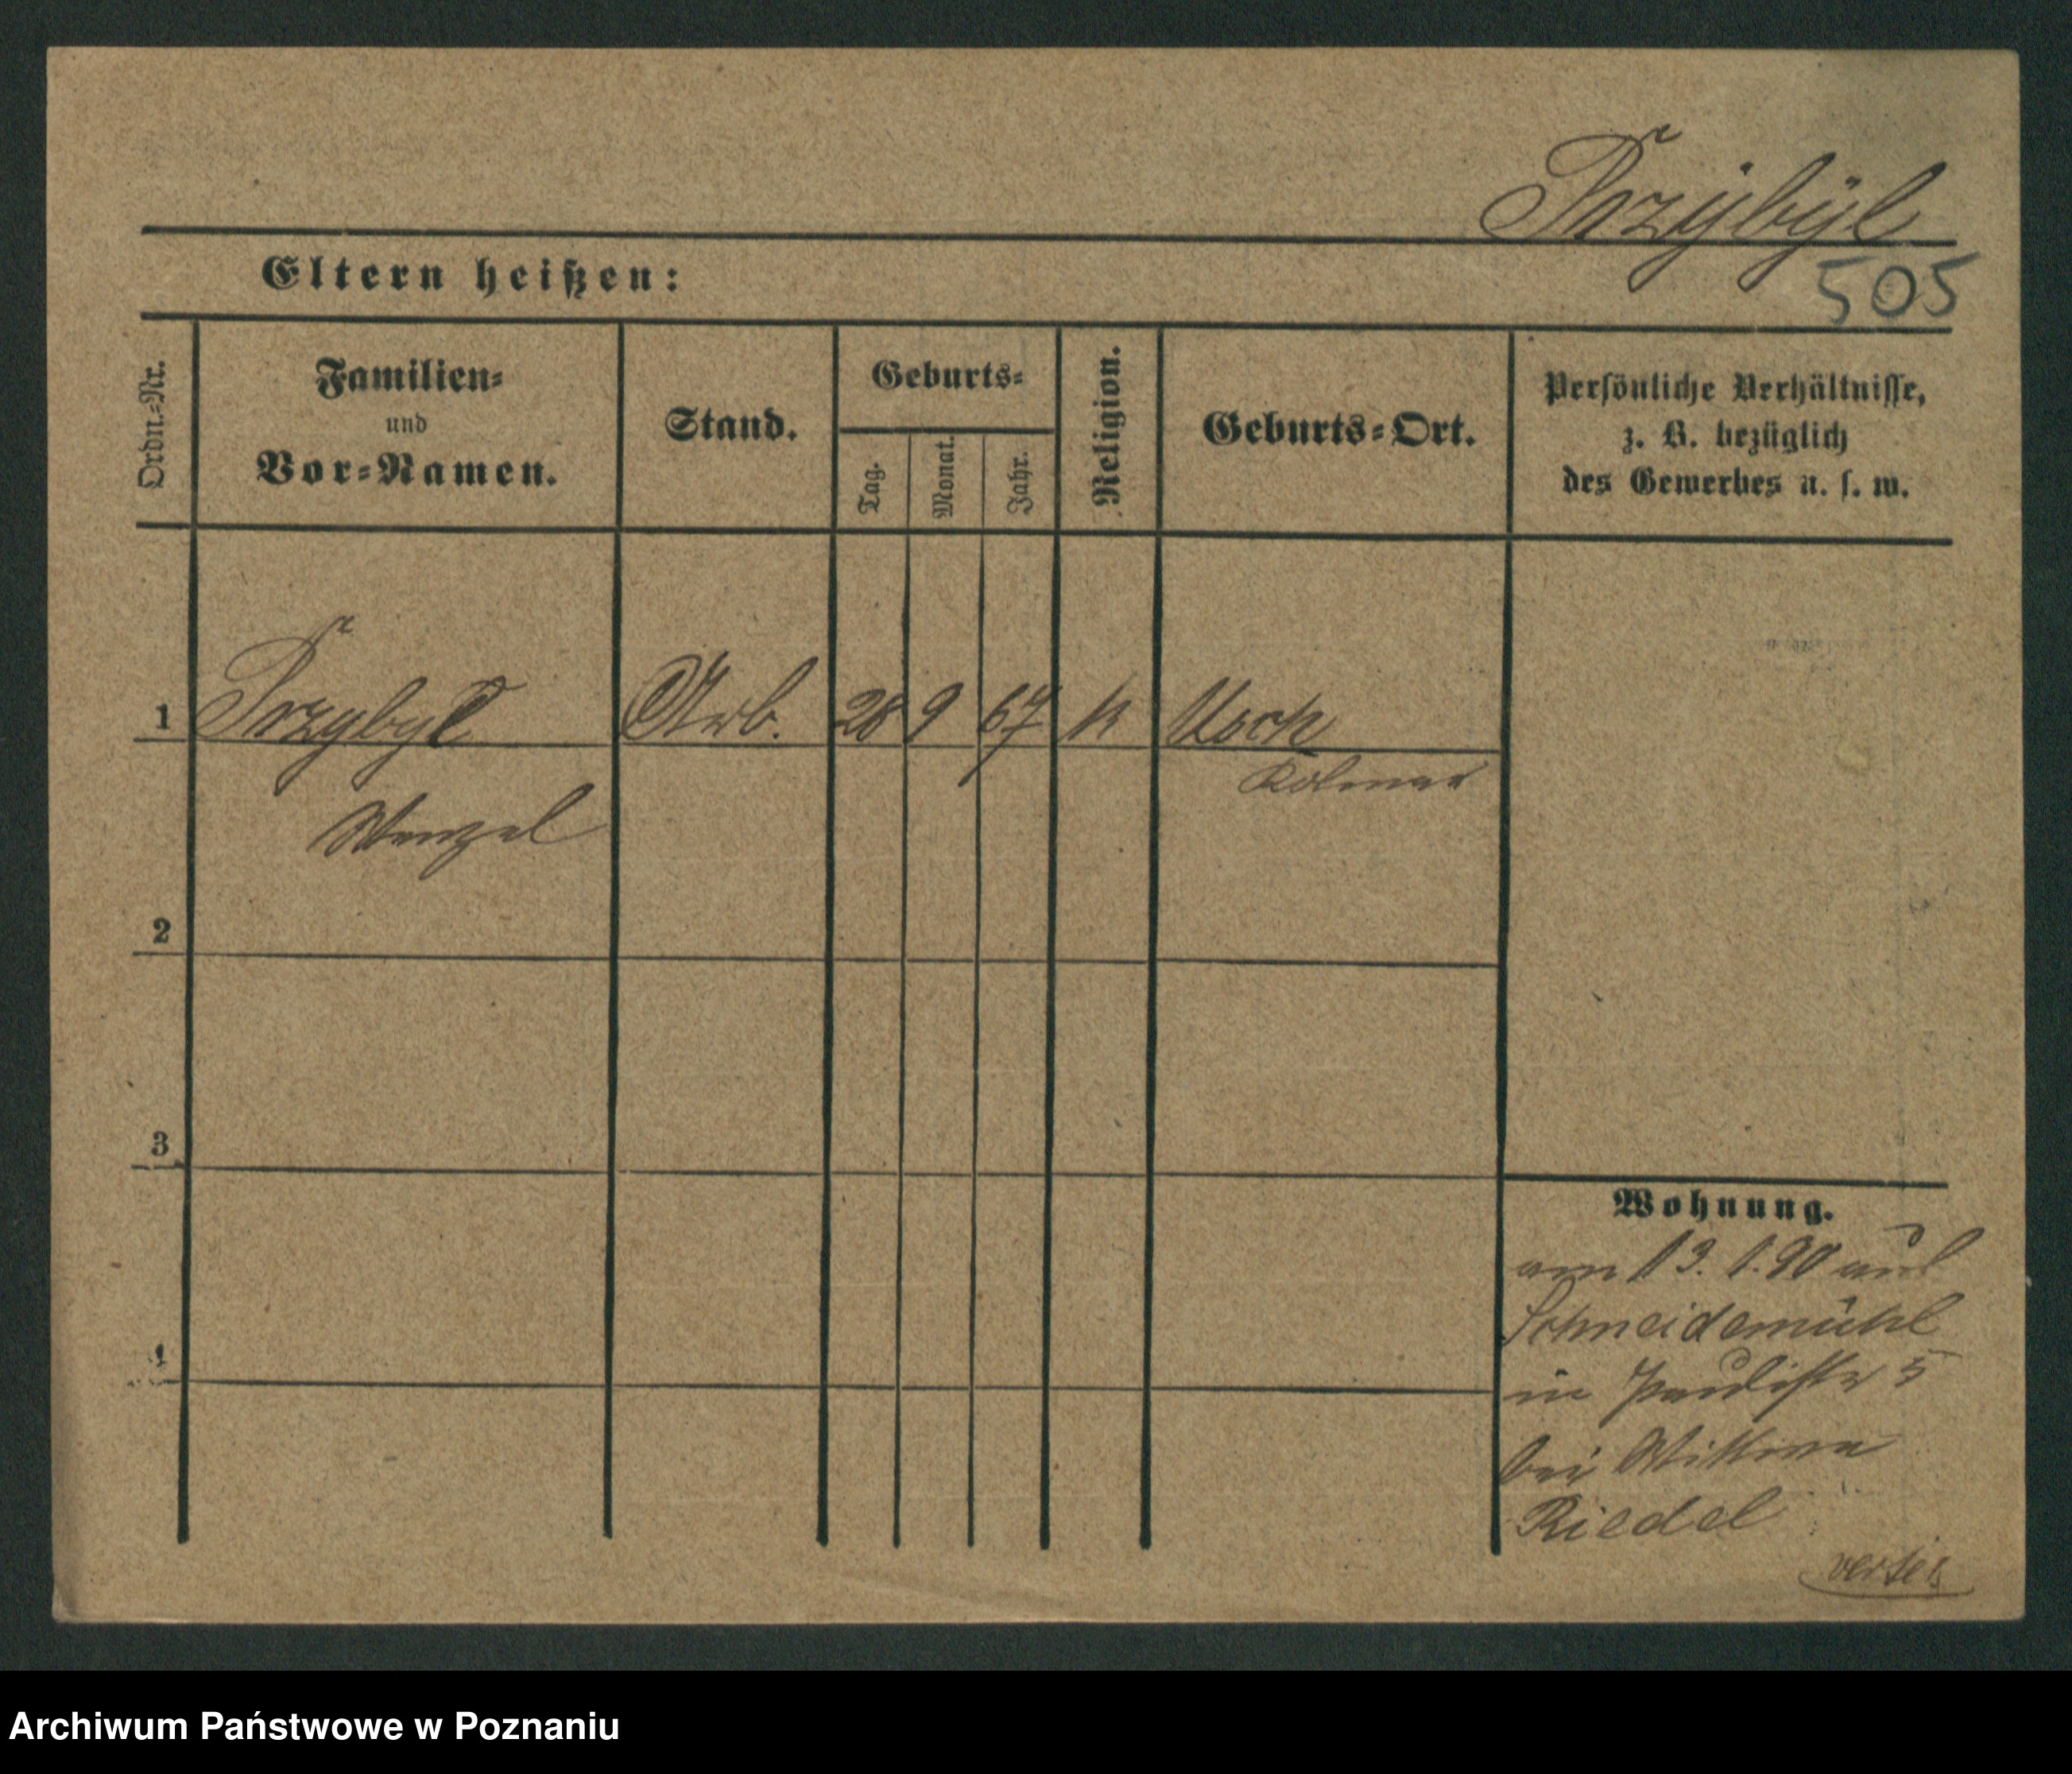 Przybyl
505
Eltern heißen:
Ordn.-Nr.
Familien-
und
Vor-Namen.
Stand.
Geburts-
Tag.
Monat.
Jahr.
Religion.
Geburts-Ort.
Persönliche Verhältnisse,
z. B. bezüglich
des Gewerbes u. s. w.
1 Przybyl Arb. 28 9 67 K Usch
Kolmar
Wenzel
2
3
4
Wohnung.
am 13. 1. 90 aus
Schneidemühl
in Paulistr 5
bei Wittwe
Riedel
Archiwum Państwowe w Poznaniu